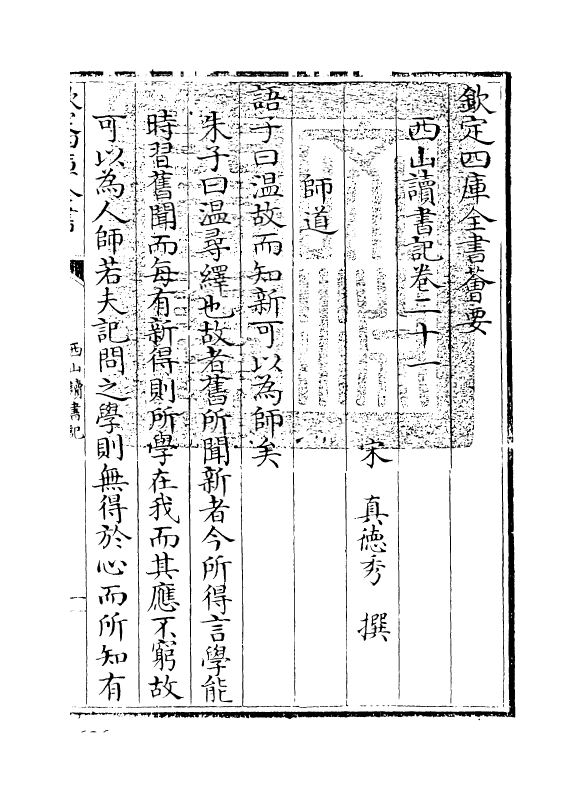 欽定四庫全書薈要
西山讀書記卷二十一
宋　真德秀　撰
師道
語子曰温故而知新可以為師矣
朱子曰温尋繹也故者舊所聞新者今所得言學能
時習舊聞而每有新得則所學在我而其應不窮故
可以為人師若夫記問之學則無得於心而所知有
西山讀書記